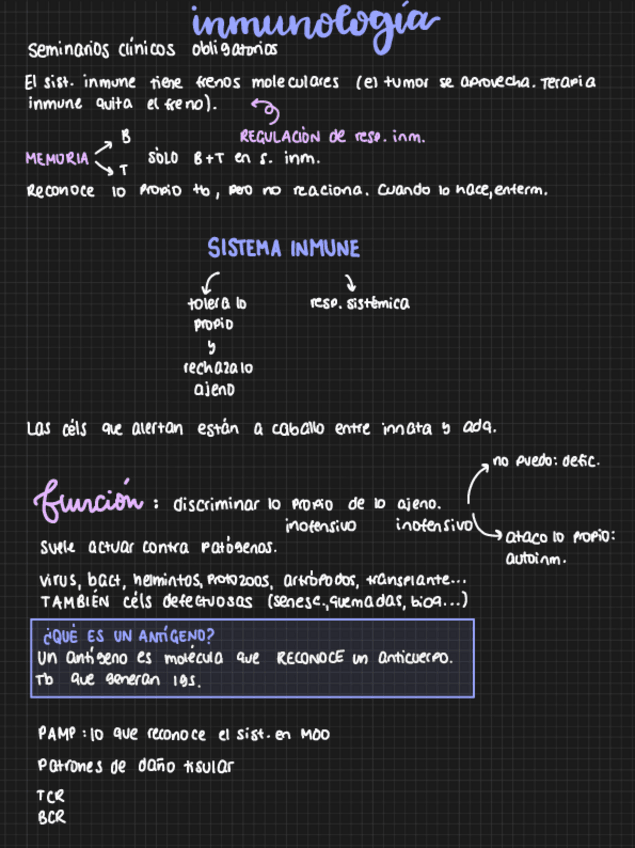 inmunología
Seminarios clínicos obligatorios
El sist. inmune tiene frenos moleculares (el tumor se aprovecha. Terapia
inmune quita el freno).
REGULACIÓN de resp. inm.
B
MEMORIA SÓLO B+T en s. inm.
T
Reconoce lo propio tb, pero no reacciona. Cuando lo hace, enferm.
SISTEMA INMUNE
tolera lo resp. sistémica
propio
y
rechaza lo
ajeno
Las céls que alertan están a caballo entre innata y adq.
no puedo: defic.
función: discriminar lo propio de lo ajeno.
inofensivo inofensivo
ataco lo propio:
autoinm.
Suele actuar contra patógenos.
virus, bact, helmintos, protozoos, artrópodos, transplante...
TAMBIÉN céls defectuosas (senesc., quemadas, bioq...)
¿QUÉ ES UN ANTÍGENO?
Un antígeno es molécula que RECONOCE un anticuerpo.
Tb que generan igs.
PAMP: lo que reconoce el sist. en MOO
Patrones de daño tisular
TCR
BCR